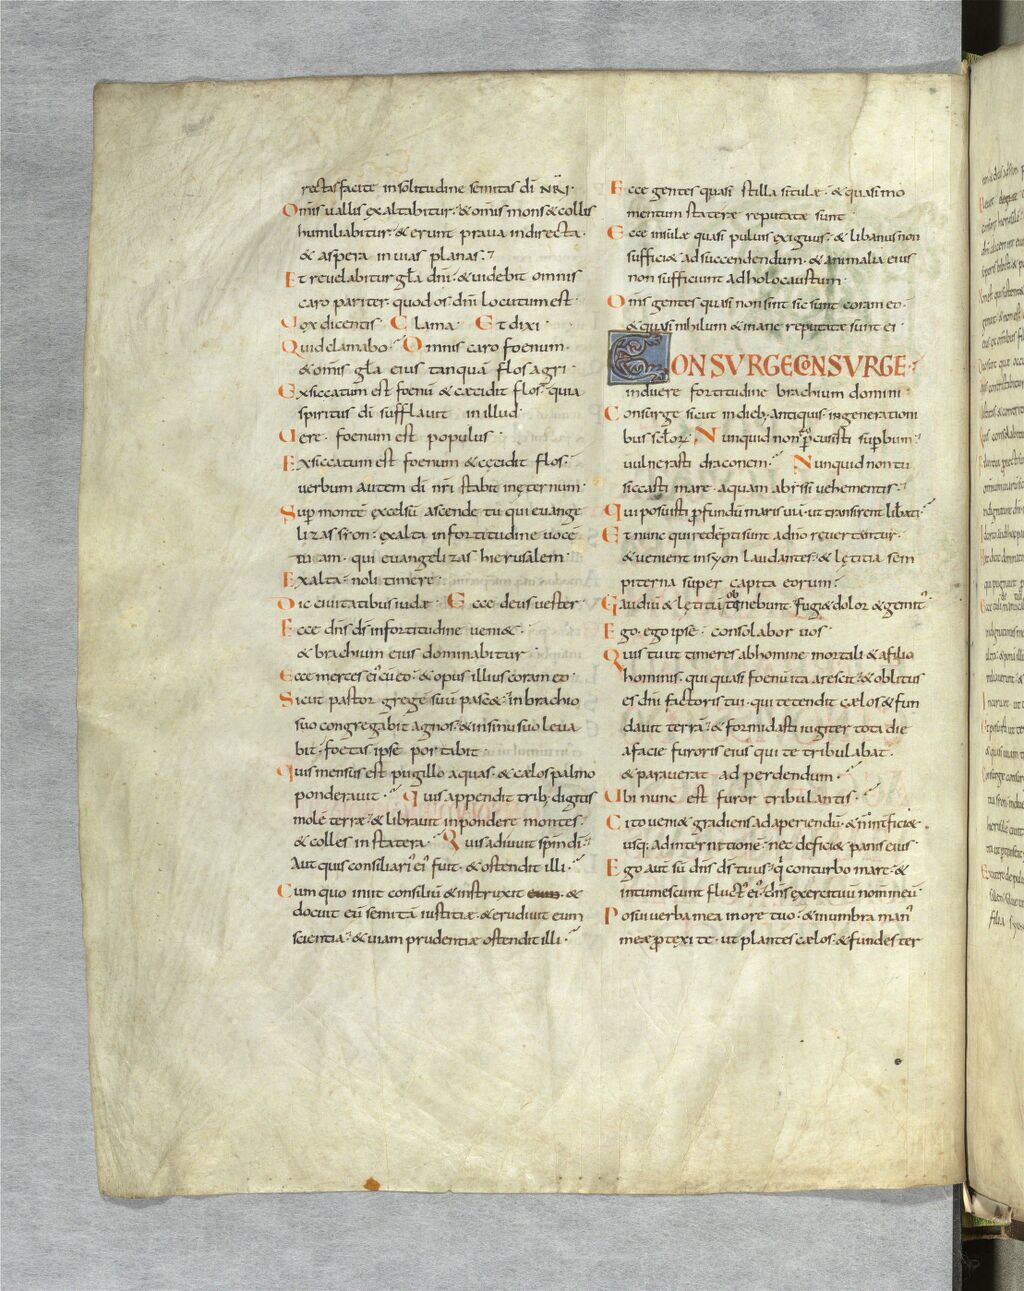 rectas facite insolitudine semitas dī NR̄I·
Om̄is uallis exaltabitur· & om̄is mons & collis
humiliabitur· & erunt praua indirecta·
& aspera in uias planas·
Et reuelabitur gl̄a dn̄i· & uidebit omnis
caro pariter· quod os dn̄i locutum est·
Uox dicentis· Clama· Et dixi·
Quid clamabo· Omnis caro foenum·
& om̄is gl̄a eius tanquā flos agri·
Exsiccatum est foenū & cęcidit flos· quia
spiritus dī sufflauit in illud·
Uere foenum est populus·
Exsiccatum est foenum & cęcidit flos·
uerbum autem dī nr̄i stabit inęternum·
Sup̄ montē excelsū ascende tu qui euange
lizas sion· exalta in fortitudine uocē
tuam· qui euangelizas hierusalem·
Exalta· noli timere·
Dic ciuitatibus iudæ· Ecce deus uester·
Ecce dn̄s dī infortitudine ueni&·
& brachium eius dominabitur·
Ecce merces ei' cū eo· & opus illius coram eo·
Sicut pastor gregē suū pasc&· in brachio
suo congregabit agnos· & insinu suo leua
bit· foetas ipse portabit·
Quis mensus est pugillo aquas· & cælos palmo
ponderauit· Quis appendit trib; digitis
molē terræ· & librauit inpondere montes·
& colles in statera· Quis adiuuit sp̄m dī·
Aut quis consiliari' ei' fuit· & ostendit illi·
Cum quo iniit consiliū & instruxit eum· &
docuit eū semitā iustitiæ· & erudiuit eum
scientia· & uiam prudentiæ ostendit illi·
Ecce gentes quasi stilla situlæ· & quasi mo
mentum stateræ reputatæ sunt·
Ecce insulæ quasi puluis exiguus· & libanus non
suffici& ad succendendum· & animalia eius
non sufficiunt ad holocaustum·
Om̄s gentes quasi non sint sic sunt coram eo·
& quasi nihilum & inane reputatæ sunt ei·
CONSVRGE CONSVRGE·
induere fortitudine brachium domini·
Consurge sicut in dieb; antiquis· in generationi
bus sc̄lorum· Nunquid non p̄cussisti sup̄bum·
uulnerasti draconem· Nunquid non tu
siccasti mare· aquam abyssi uehementis·
Qui posuisti p̄fundū maris uiā· ut transirent lib̄ati·
Et nunc qui redēpti sunt a dn̄o reuertentur·
& uenient in syon laudantes· & lętitia sem
piterna super capita eorum·
Gaudiū & lętitiā tenebunt· fugi& dolor & gemit'·
ob
Ego ego ipse consolabor uos·
Quis tu ut timeres ab homine mortali· & a filio
hominis· qui quasi foenū ita aresc&· & oblitus
es dn̄i factoris tui· qui tetendit cælos & fun
dauit terrā· & formidasti iugiter tota die
a facie furoris eius qui te tribulabat·
& parauerat ad perdendum·
Ubi nunc est furor tribulantis·
Cito ueni& gradiens ad aperiendū· & n̄ interfici&·
usq; ad internitionē· nec defici& panis eius·
Ego aut̄ sū dn̄s dī tuus· q̄ conturbo mare· &
intumescunt fluct' ei'· dn̄s exercituū nom̄ meū·
Posui uerba mea in ore tuo· & in umbra man'
meæ p̄texi te· ut plantes cælos· & fundes ter